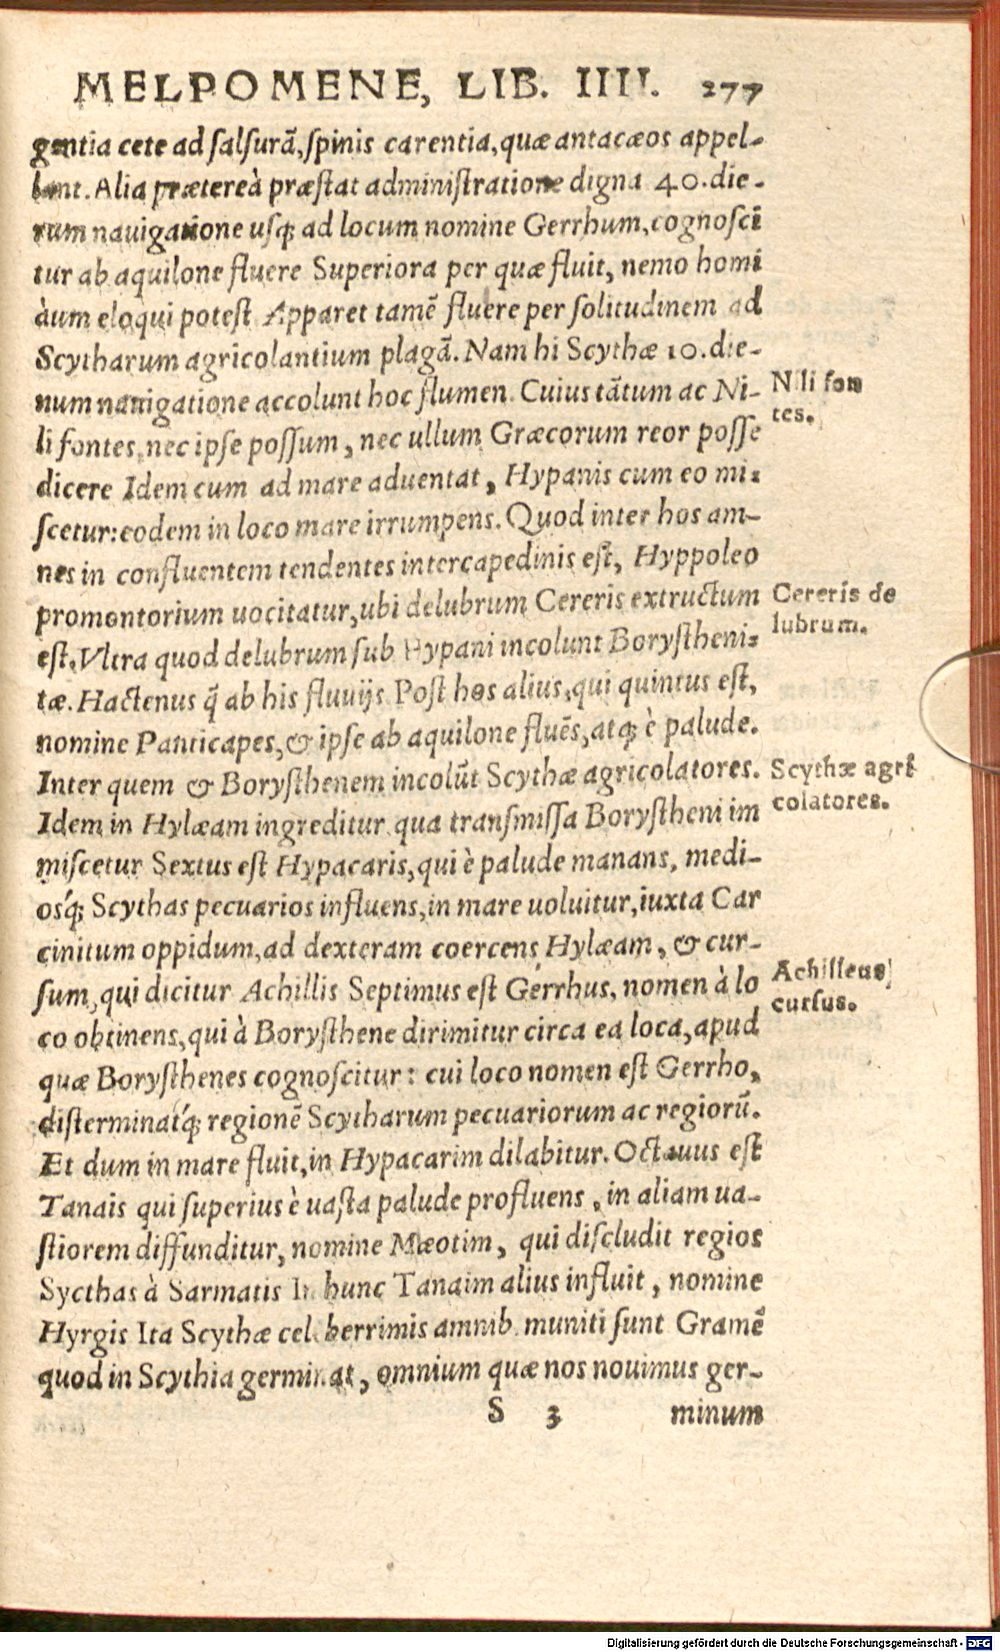 MELPOMENE, LIB. IIII. 277
gentia cete ad salsurã, spinis carentia, quæ antacæos appel-
lant. Alia prætereà præstat administratione digna 40. die-
rum nauigatione usq; ad locum nomine Gerrhum, cognosci
tur ab aquilone fluere Superiora per quæ fluit, nemo homi
num eloqui potest Apparet tamē fluere per solitudinem ad
Scytharum agricolantium plagã. Nam hi Scythæ 10. die-
num nauigatione accolunt hoc flumen. Cuius tãtum ac Ni-
li fontes, nec ipse possum, nec ullum Græcorum reor posse
dicere Idem cum ad mare aduentat, Hypanis cum eo mi-
scetur: eodem in loco mare irrumpens. Quod inter hos am-
nes in confluentem tendentes intercapedinis est, Hyppoleo
promontorium uocitatur, ubi delubrum Cereris extructum
est. Vltra quod delubrum sub Hypani incolunt Borystheni-
tæ. Hactenus q̃ ab his fluuijs Post hos alius, qui quintus est,
nomine Panticapes, & ipse ab aquilone fluẽs, atq; è palude.
Inter quem & Borysthenem incolũt Scythæ agricolatores.
Idem in Hylæam ingreditur qua transmissa Borystheni im
miscetur Sextus est Hypacaris, qui è palude manans, medi-
osq́; Scythas pecuarios influens, in mare uoluitur, iuxta Car
cinitum oppidum, ad dexteram coercens Hylæam, & cur-
sum, qui dicitur Achillis Septimus est Gerrhus, nomen à lo
co obtinens, qui à Borysthene dirimitur circa ea loca, apud
quæ Borysthenes cognoscitur: cui loco nomen est Gerrho,
disterminatq́; regionē Scytharum pecuariorum ac regiorũ.
Et dum in mare fluit, in Hypacarim dilabitur. Octauus est
Tanais qui superius è uasta palude profluens, in aliam ua-
stiorem diffunditur, nomine Mæotim, qui discludit regios
Sycthas à Sarmatis In hunc Tanaim alius influit, nomine
Hyrgis Ita Scythæ celeberrimis amnib. muniti sunt Gramē
quod in Scythia germinat, omnium quæ nos nouimus ger-
S 3 minum
Nili fon
tes.
Cereris de
lubrum.
Scythæ agri
colatores.
Achilleus
cursus.
Digitalisierung gefördert durch die Deutsche Forschungsgemeinschaft - DFG